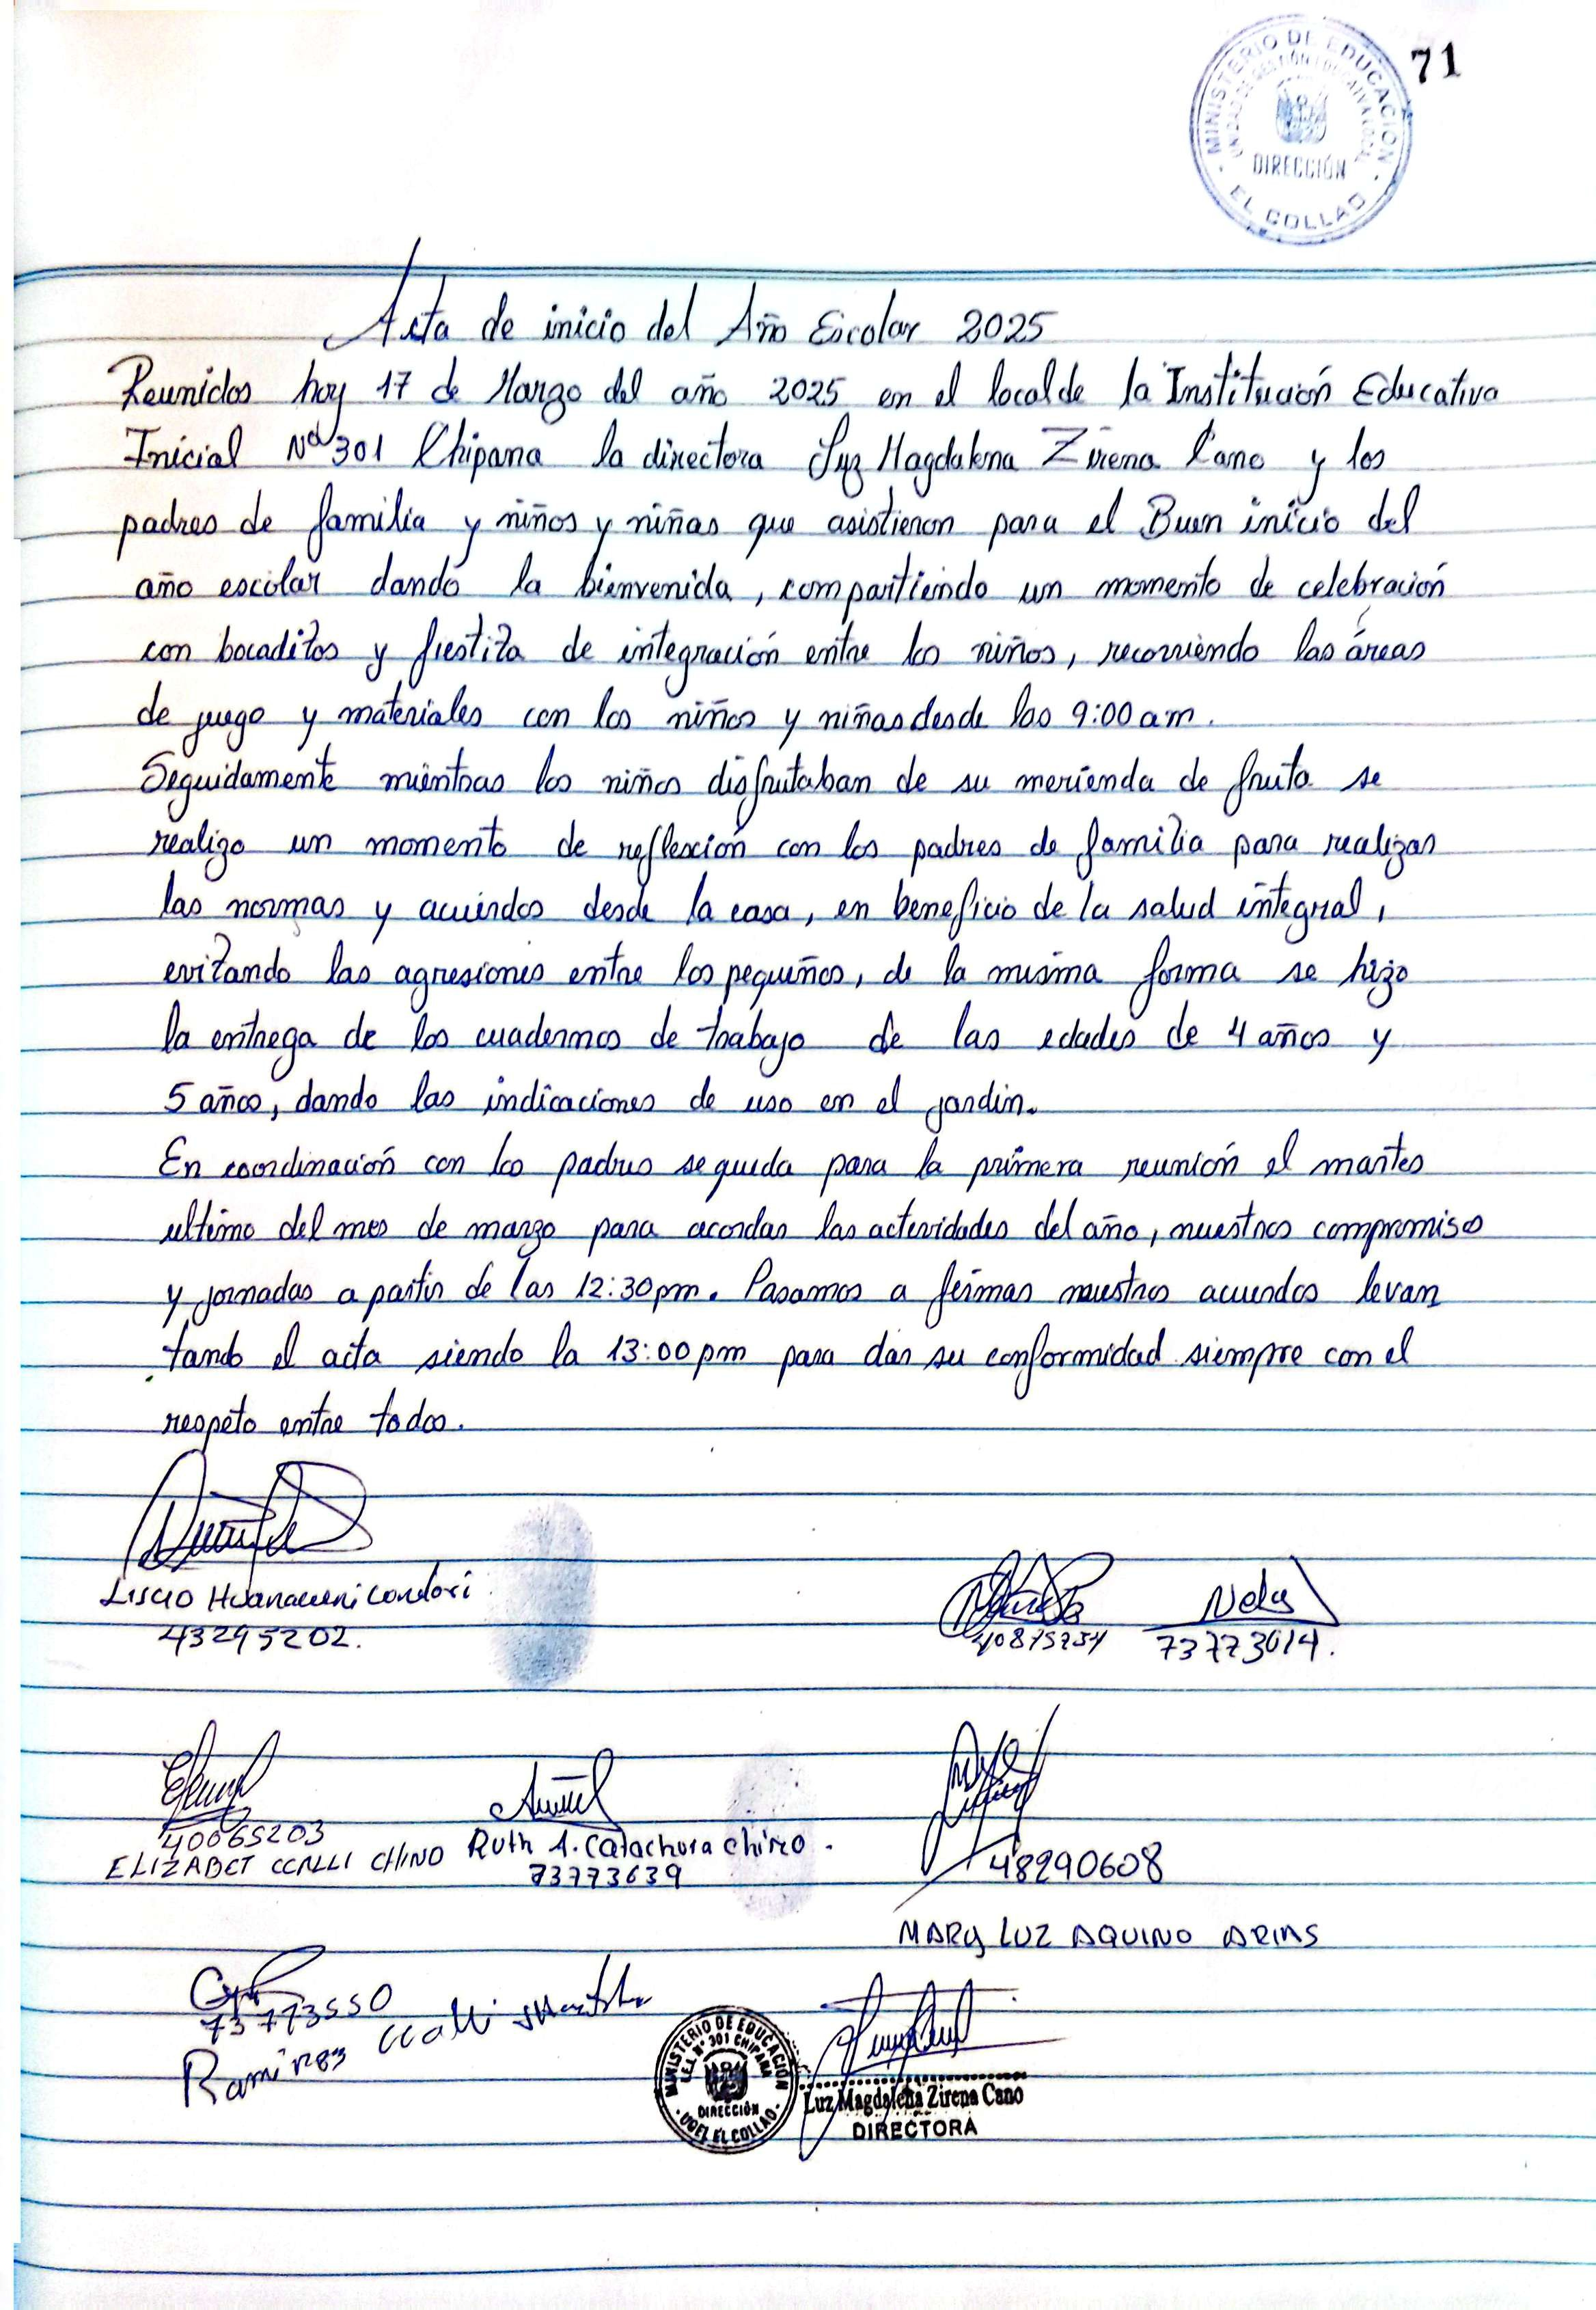 MINISTERIO DE EDUCACION
UNIDAD DE GESTIÓN EDUCATIVA LOCAL
DIRECCIÓN
EL COLLAO
71
Acta de inicio del Año Escolar 2025
Reunidos hoy 17 de Marzo del año 2025 en el local de la Institución Educativa
Inicial Nº 301 Chipana la directora Luz Magdalena Zirena Cano y los
padres de familia y niños y niñas que asistieron para el Buen inicio del
año escolar dando la bienvenida, compartiendo un momento de celebración
con bocaditos y fiestita de integración entre los niños, recorriendo las áreas
de juego y materiales con los niños y niñas desde las 9:00 am.
Seguidamente mientras los niños disfrutaban de su merienda de fruta se
realizo un momento de reflexión con los padres de familia para realizar
las normas y acuerdos desde la casa, en beneficio de la salud integral,
evitando las agresiones entre los pequeños, de la misma forma se hizo
la entrega de los cuadernos de trabajo de las edades de 4 años y
5 años, dando las indicaciones de uso en el jardin.
En coordinación con los padres se queda para la primera reunión el martes
ultimo del mes de marzo para acordar las actividades del año, nuestros compromisos
y jornadas a partir de las 12:30 pm. Pasamos a firmar nuestros acuerdos levan
tando el acta siendo la 13:00 pm para dar su conformidad siempre con el
respeto entre todos.
Huanacuni Condori
43295202.
Nely
73773614.
40065203
ELIZABET CCALLI CHINO
Ruth A. Catachura Chino.
73773639
48290608
MARY LUZ AQUINO ARIAS
73773550
Ramires Ccalli
MINISTERIO DE EDUCACIÓN
I.E.I. Nº 301 CHIPANA
DIRECCIÓN
UGEL EL COLLAO
Luz Magdalena Zirena Cano
DIRECTORA